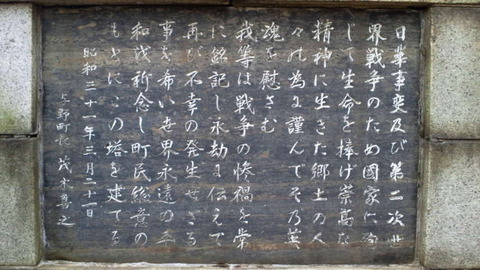 日華事変及び第二次世
界戦争のため國家に対
して生命を捧げ崇高な
精神に生きた郷土の人
々の為に謹んでその英
魂を慰さむ
我等は戦争の惨禍を常
に銘記し永劫に伝えて
再び不幸の発生せざる
事を希い世界永遠の平
和を祈念し町民総意の
もとにこの塔を建てる
昭和三十一年三月二十一日
上野町長 茂木